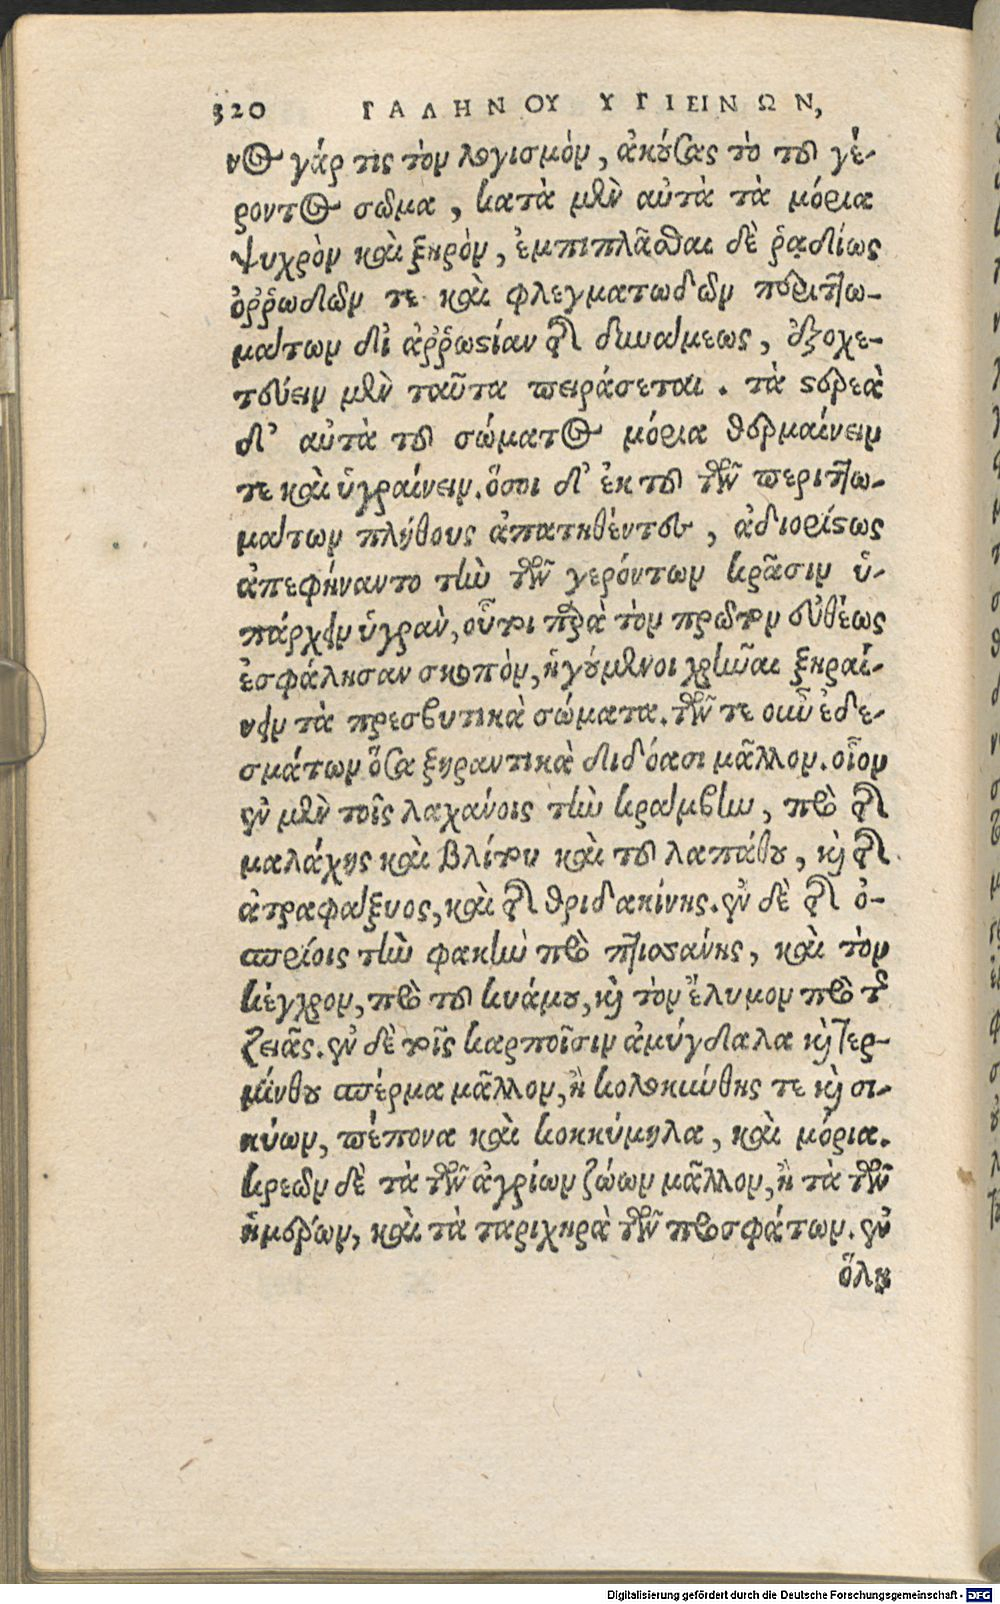 320 ΓΑΛΗΝΟΥ ΥΓΙΕΙΝΩΝ,
νος γάρ τις τὸν λογισμὸν, ἀκούσας τὸ τοῦ γέ-
ροντος σῶμα, κατὰ μὲν αὐτὰ τὰ μόρια
ψυχρὸν καὶ ξηρὸν, ἐμπιπλᾶσθαι δὲ ῥᾳδίως
ὀῤῥωδῶν τε καὶ φλεγματωδῶν περιττω-
μάτων δι' ἀῤῥωστίαν τῆς δυνάμεως, ἐξοχε-
τεύειν μὲν ταῦτα πειράσεται. τὰ στερεὰ
δ' αὐτὰ τοῦ σώματος μόρια θερμαίνειν
τε καὶ ὑγραίνειν. ὅσοι δ' ἐκ τοῦ τῶν περιττω-
μάτων πλήθους ἀπατηθέντες, ἀδιορίστως
ἀπεφήναντο τὴν τῶν γερόντων κρᾶσιν ὑ-
πάρχειν ὑγρὰν, οὗτοι παρὰ τὸν πρῶτον εὐθέως
ἐσφάλησαν σκοπὸν, ἡγούμενοι χρῆναι ξηραί-
νειν τὰ πρεσβυτικὰ σώματα. τῶν τε οὖν ἐδε-
σμάτων ὅσα ξηραντικὰ διδόασι μᾶλλον. οἷον
ἐν μὲν τοῖς λαχάνοις τὴν κράμβην, πρὸ τῆς
μαλάχης καὶ βλίτου καὶ τοῦ λαπάθου, καὶ τῆς
ἀτραφάξυος, καὶ τῆς θριδακίνης. ἐν δὲ τοῖς ὀ-
σπρίοις τὴν φακὴν πρὸ πτισάνης, καὶ τὸν
κέγχρον, πρὸ τοῦ κυάμου, καὶ τὸν ἔλυμον πρὸ τῆς
ζειᾶς. ἐν δὲ τοῖς καρποῖσιν ἀμύγδαλα καὶ τερ-
μίνθου σπέρμα μᾶλλον, ἢ κολοκύνθης τε καὶ σι-
κύων, πέπονα καὶ κοκκύμηλα, καὶ μόρια.
κρεῶν δὲ τὰ τῶν ἀγρίων ζώων μᾶλλον, ἢ τὰ τῶν
ἡμέρων, καὶ τὰ ταριχηρὰ τῶν προσφάτων. ἐν
ὅλῳ
Digitalisierung gefördert durch die Deutsche Forschungsgemeinschaft - DFG